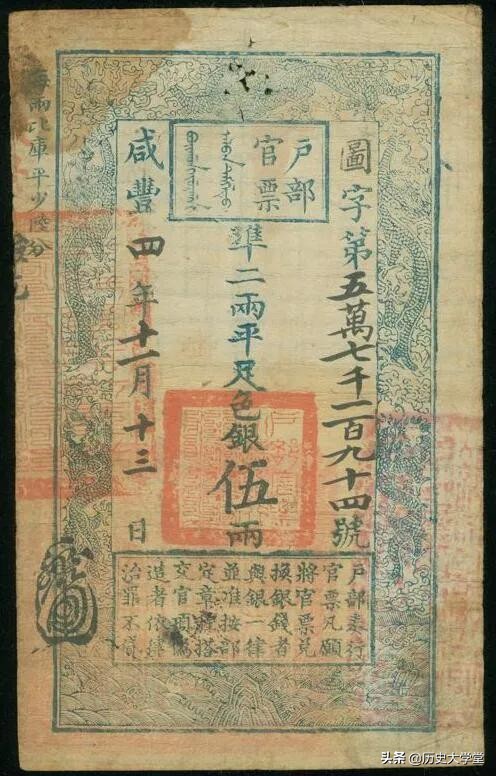 戶部
官票
圖字第五萬七千一百九十四號
準二兩平足色銀伍兩
咸豐四年十一月十三日
戶部奏行
官票凡願
將官票兌
換銀錢者
與銀一律
並准按部
定章程搭
交官項偽
造者依律
治罪不貸
每兩比庫平少陸分
头条 @历史大学堂